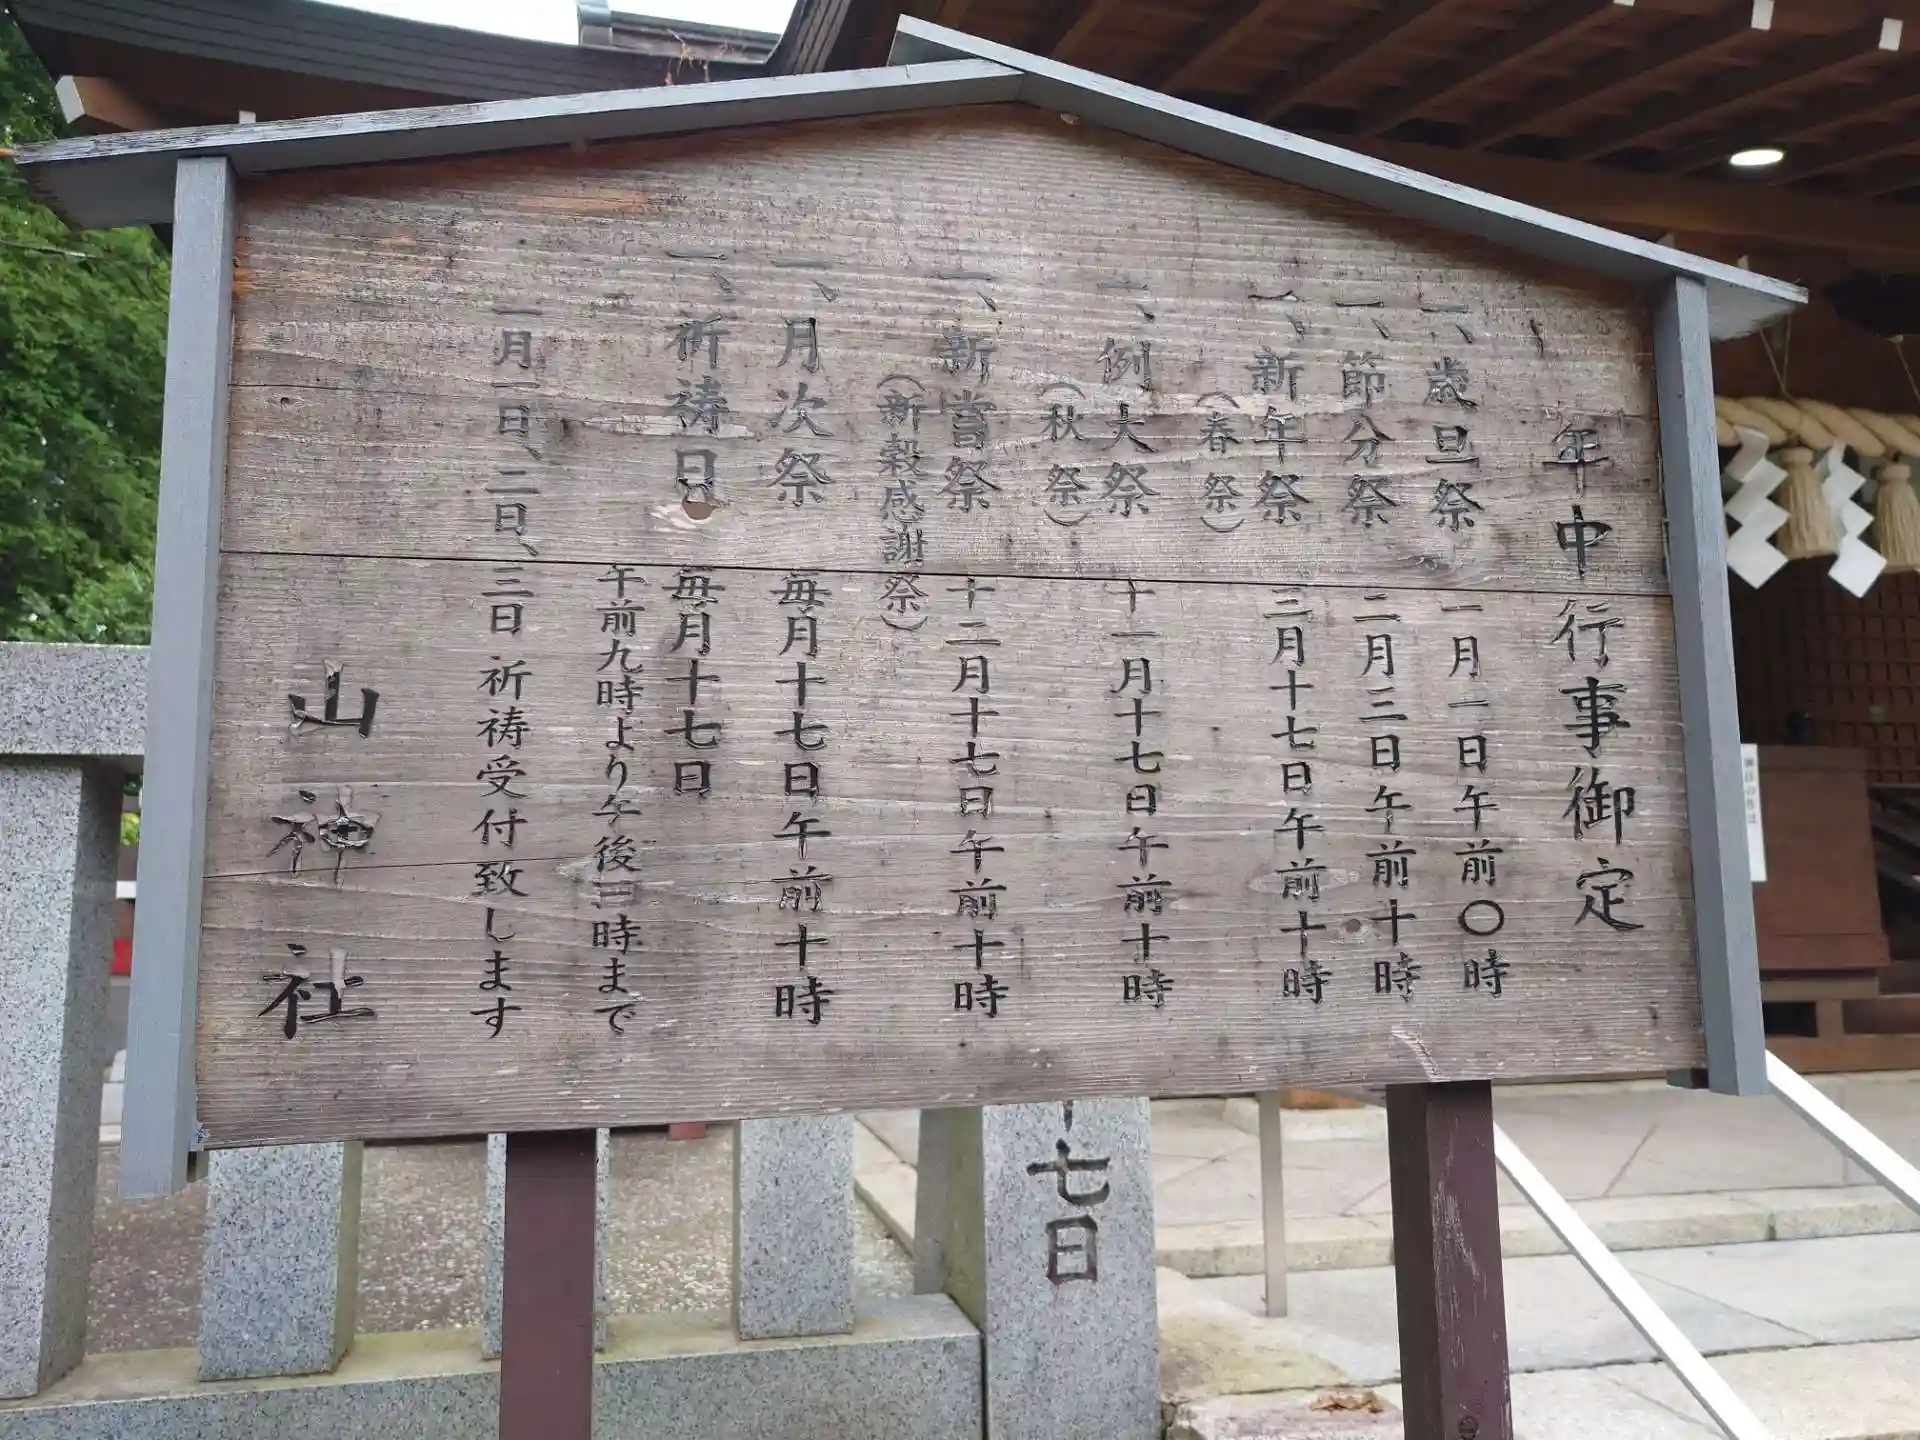 年中行事御定
一、歳旦祭 一月一日午前〇時
一、節分祭 二月三日午前十時
一、新年祭 三月十七日午前十時
(春祭)
一、例大祭 十一月十七日午前十時
(秋祭)
一、新嘗祭 十二月十七日午前十時
(新穀感謝祭)
一、月次祭 毎月十七日午前十時
一、祈祷日 毎月十七日
午前九時より午後三時まで
一月一日、二日、三日 祈祷受付致します
山神社
十七日